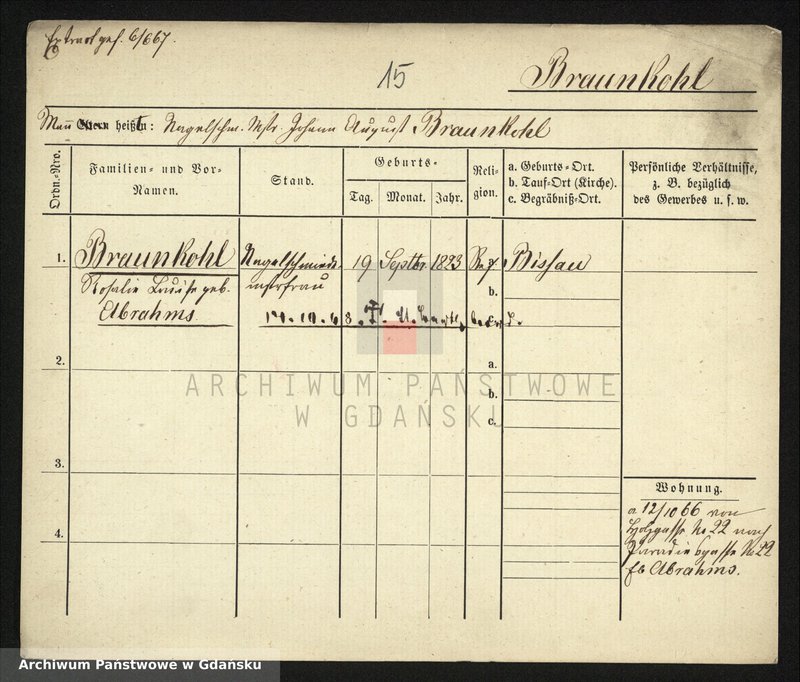 Extract gef. 6/667.
15
Braunkohl
Mann Eltern heißt: Nagelschm. Mstr. Johann August Braunkohl
Ordn.-Nro.
Familien- und Vor-
Namen.
Stand.
Geburts-
Tag. Monat. Jahr.
Reli-
gion.
a. Geburts-Ort.
b. Tauf-Ort (Kirche).
c. Begräbniß-Ort.
Persönliche Verhältnisse,
z. B. bezüglich
des Gewerbes u. s. w.
1. Braunkohl Nagelschmiede 19 Septbr. 1823 a. Bissau
Rosalie Luise geb. mstrfrau b.
Abrahms 68.
2. a.
ARCHIWUM PAŃSTWOWE
b.
W GDAŃSKU
c.
3.
Wohnung.
a 12/10 66 von
Holzgasse No 22 nach
4. Paradiesgasse No 22
Abrahms.
Archiwum Państwowe w Gdańsku